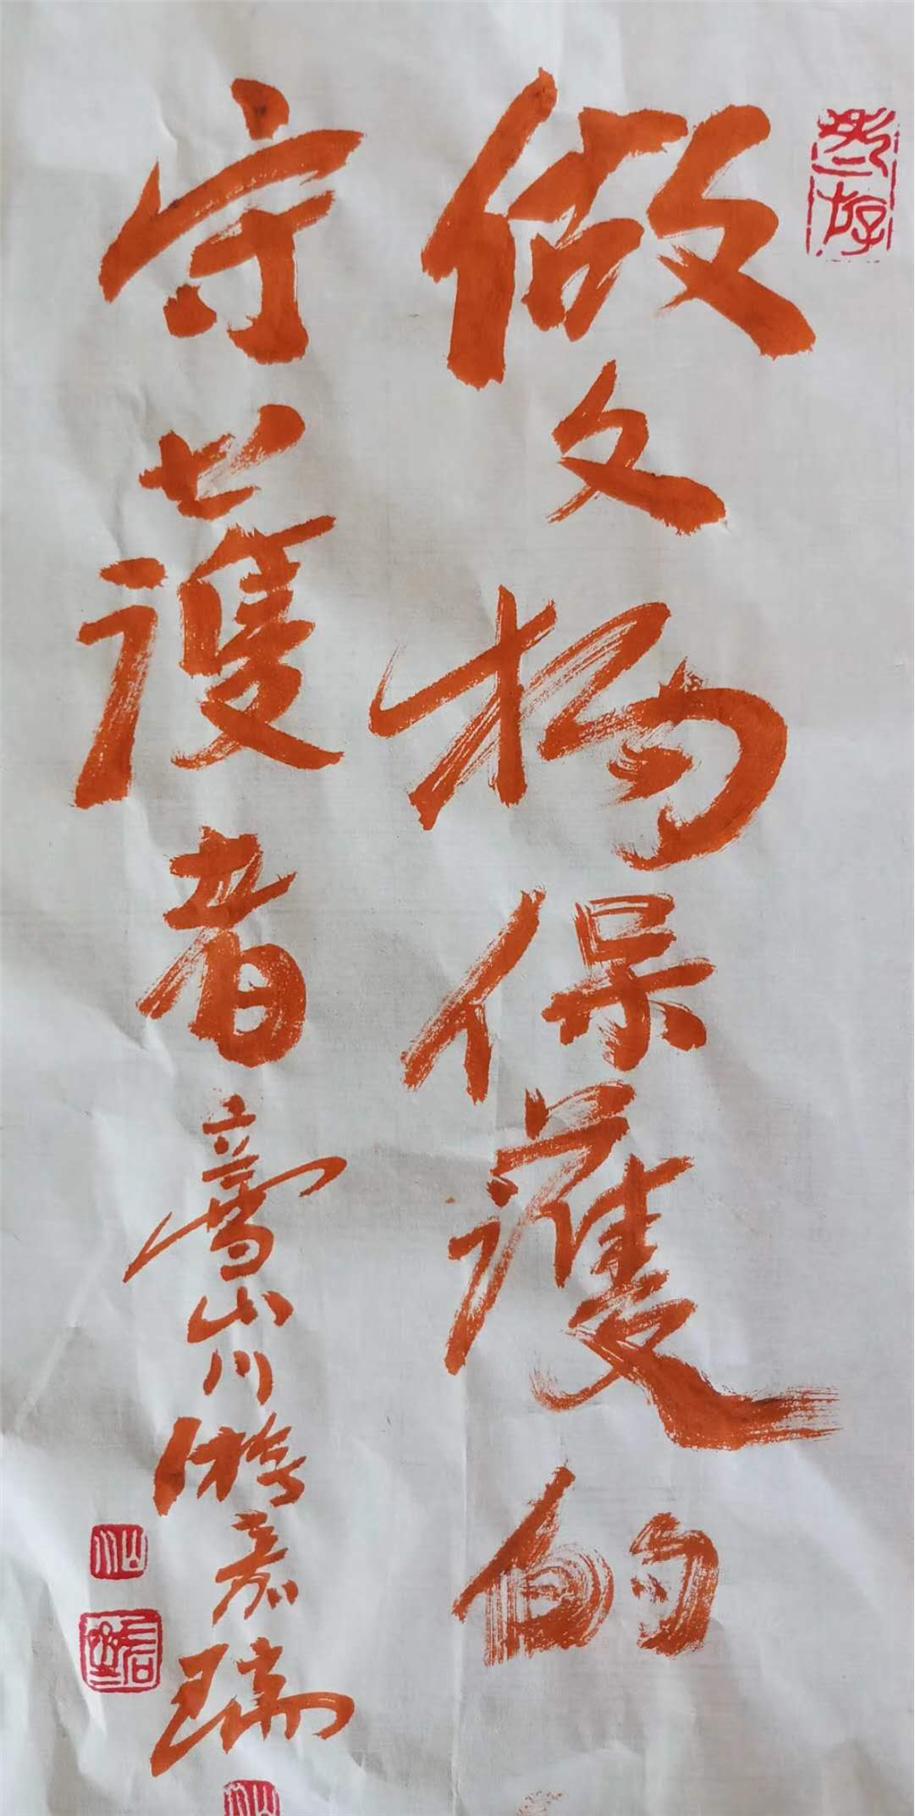 做文物保護的
守護者
山川游嘉瑞